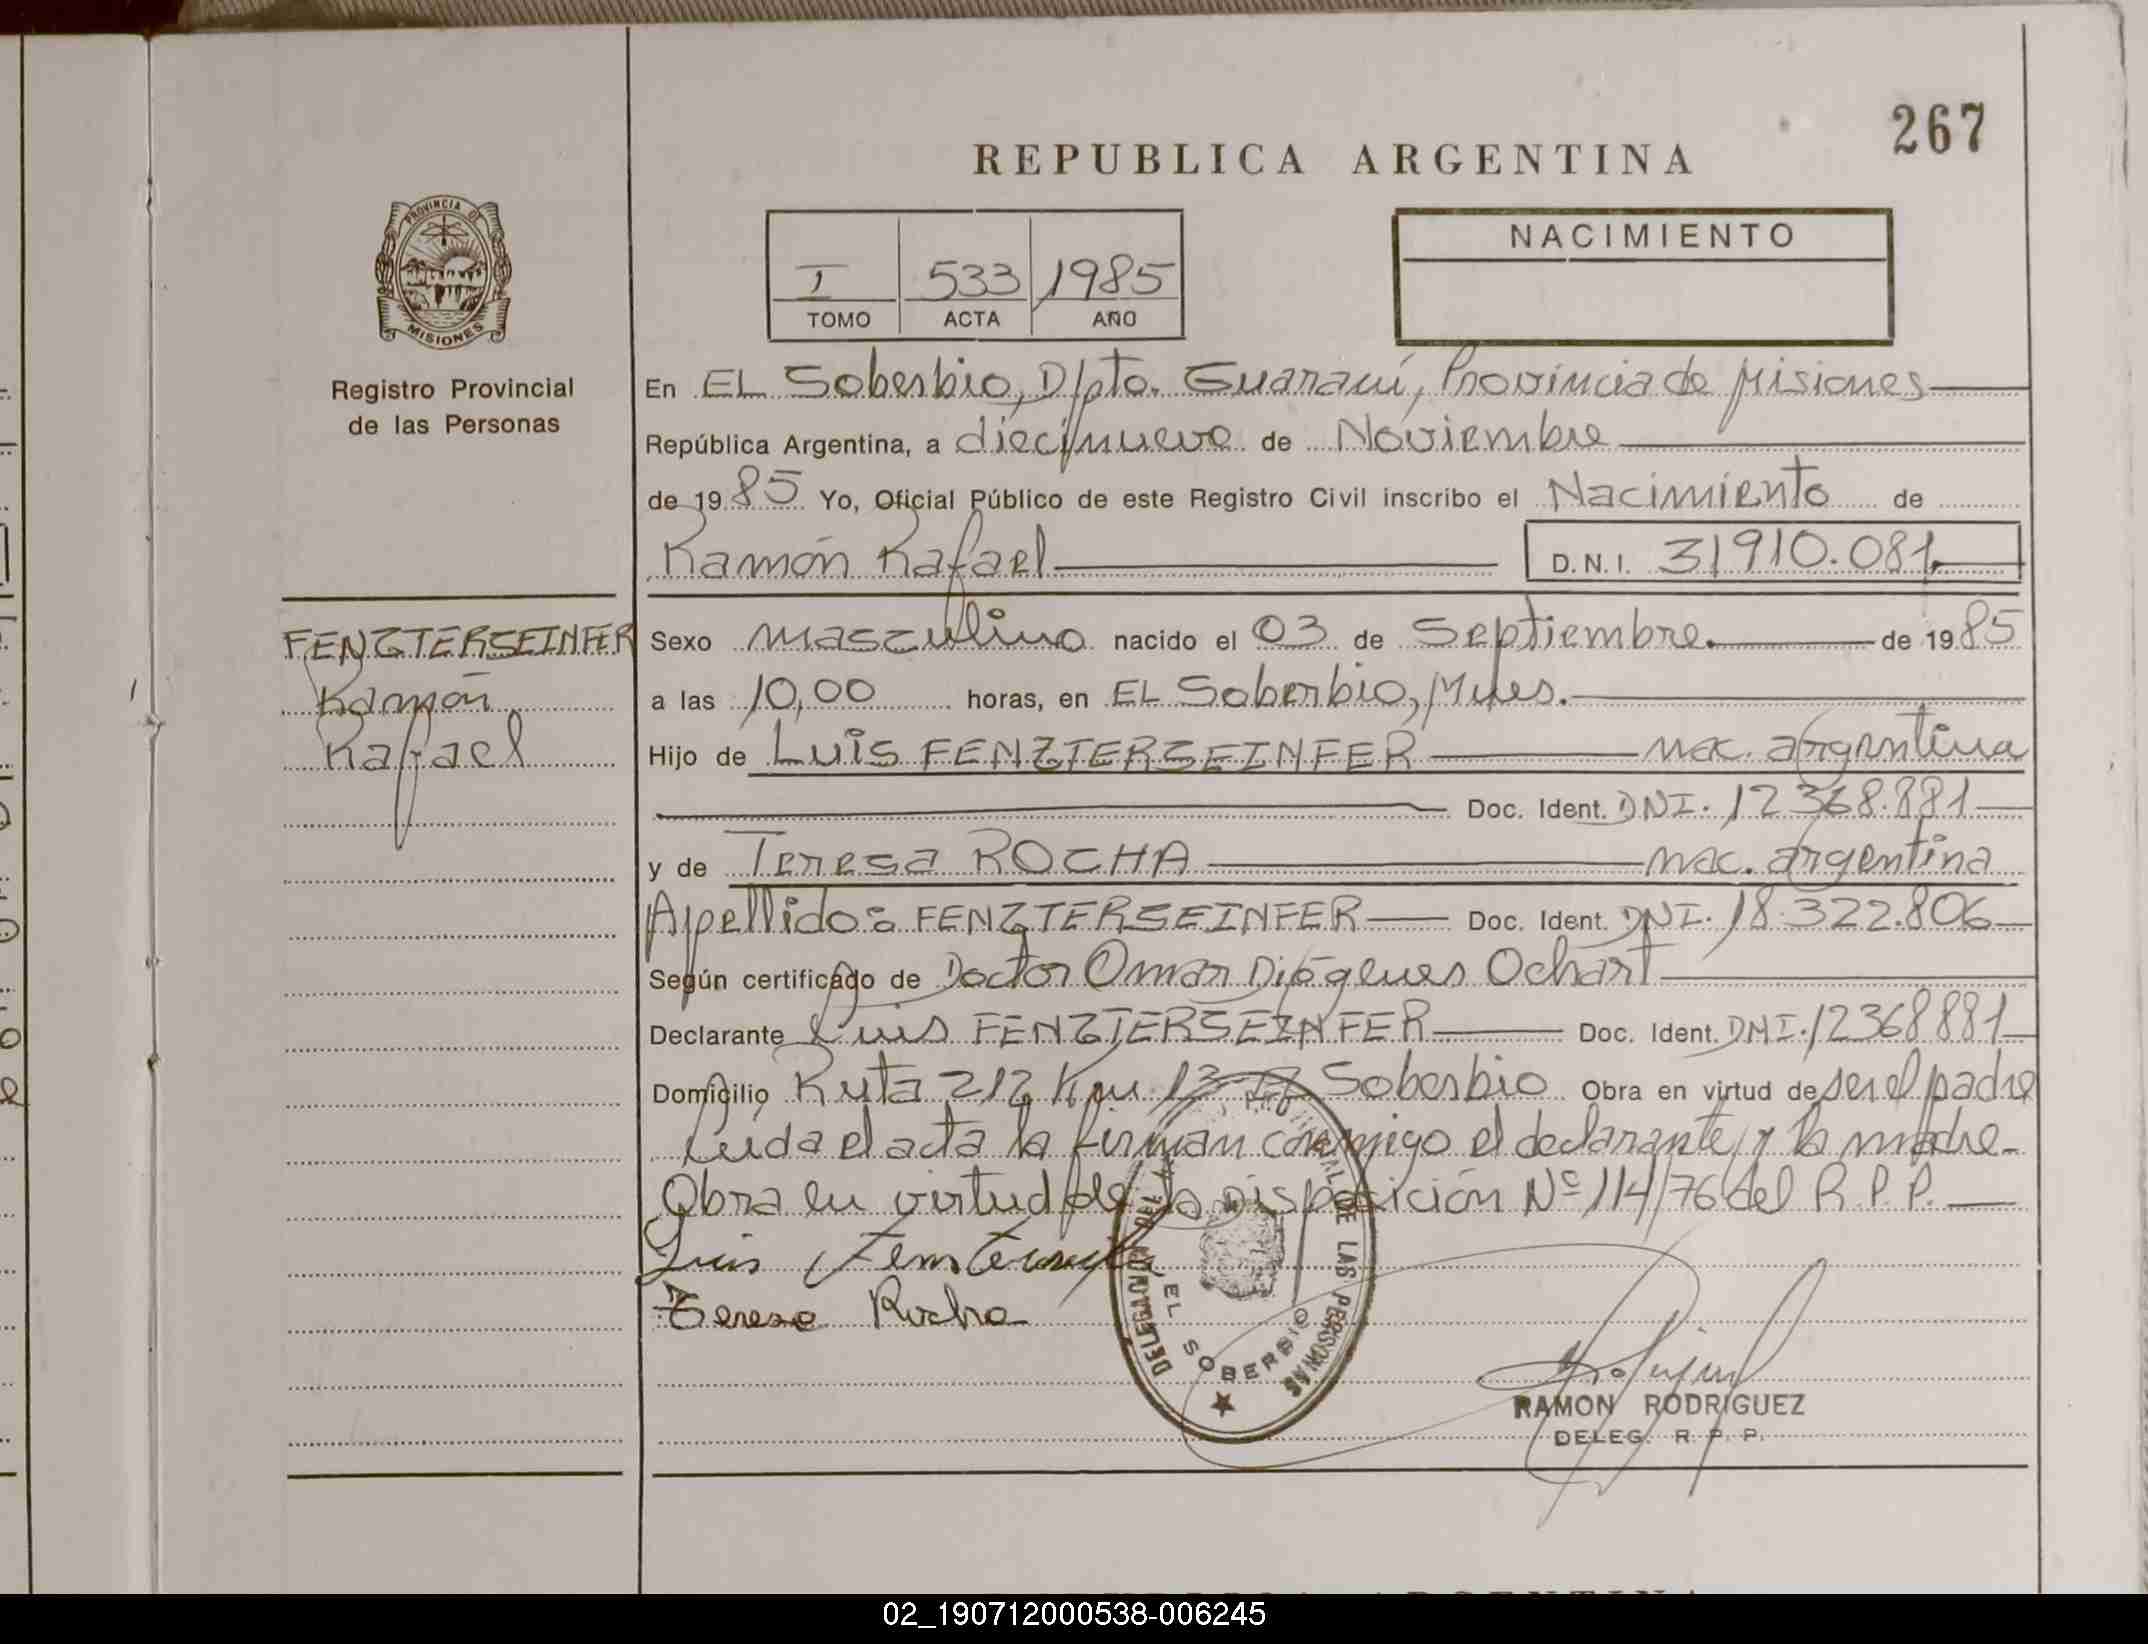 267
REPUBLICA ARGENTINA
PROVINCIA D
MISIONES
Registro Provincial
de las Personas
I 533 1985
TOMO ACTA AÑO
NACIMIENTO
En EL Soberbio, Dpto. Guaraní, Provincia de Misiones
República Argentina, a diecinueve de Noviembre
de 1985 Yo, Oficial Público de este Registro Civil inscribo el Nacimiento de
Ramón Rafael D.N.I. 31910.081
FENZTERSEINFER
Ramón
Rafael
Sexo masculino nacido el 03 de Septiembre. de 1985
a las 10,00 horas, en EL Soberbio, Mnes.
Hijo de Luis FENZTERSEINFER nac. argentina
Doc. Ident. DNI. 12 368.881
y de Teresa ROCHA nac. argentina
Apellido: FENZTERSEINFER Doc. Ident. DNI. 18.322.806
Según certificado de Doctor Omar Diógenes Ochart
Declarante Luis FENZTERSEINFER Doc. Ident. DNI. 12368881
Domicilio Ruta 212 Km 13 El Soberbio Obra en virtud de ser el padre
Leida el acta la firman conmigo el declarante y la madre.
Obra en virtud de la Disposición Nº 114/76 del R.P.P.
Luis
Teresa Rocha
DELEGACION DE LAS PERSONAS
EL SOBERBIO
RAMON RODRIGUEZ
DELEG. R. P. P.
02_190712000538-006245